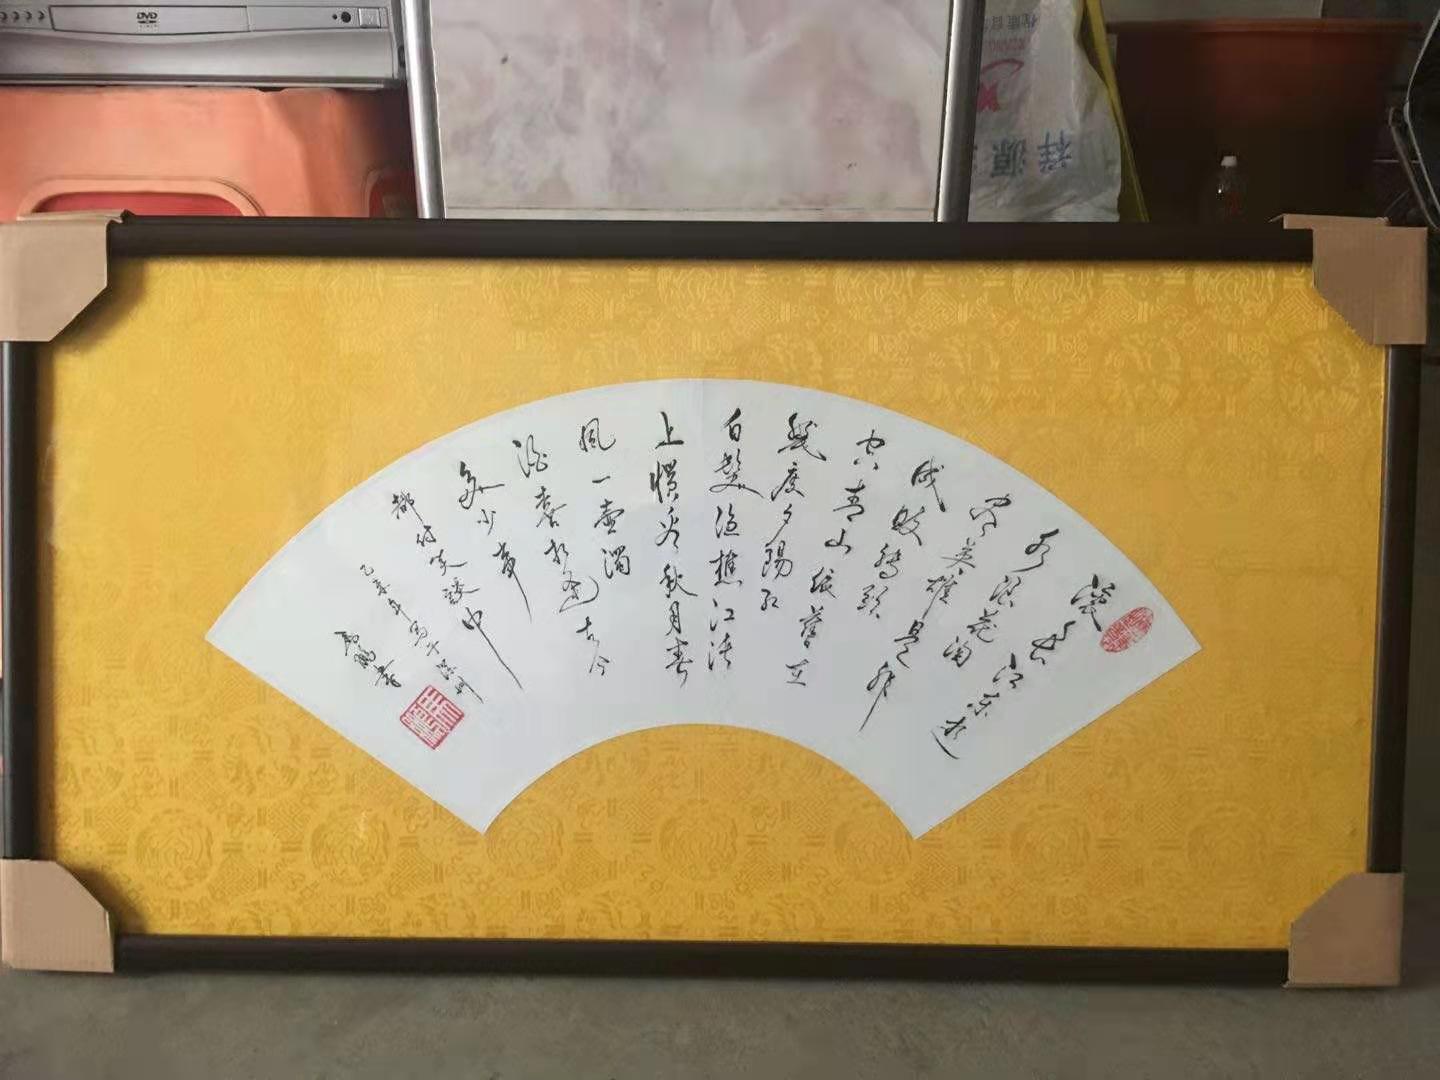 滚滚长江东逝
水浪花淘
尽英雄是非
成败转头
空青山依舊在
幾度夕陽红
白髮渔樵江渚
上惯看秋月春
风一壶濁
酒喜相逢古今
多少事
都付笑谈中
乙亥年写于
书
DVD
祥源